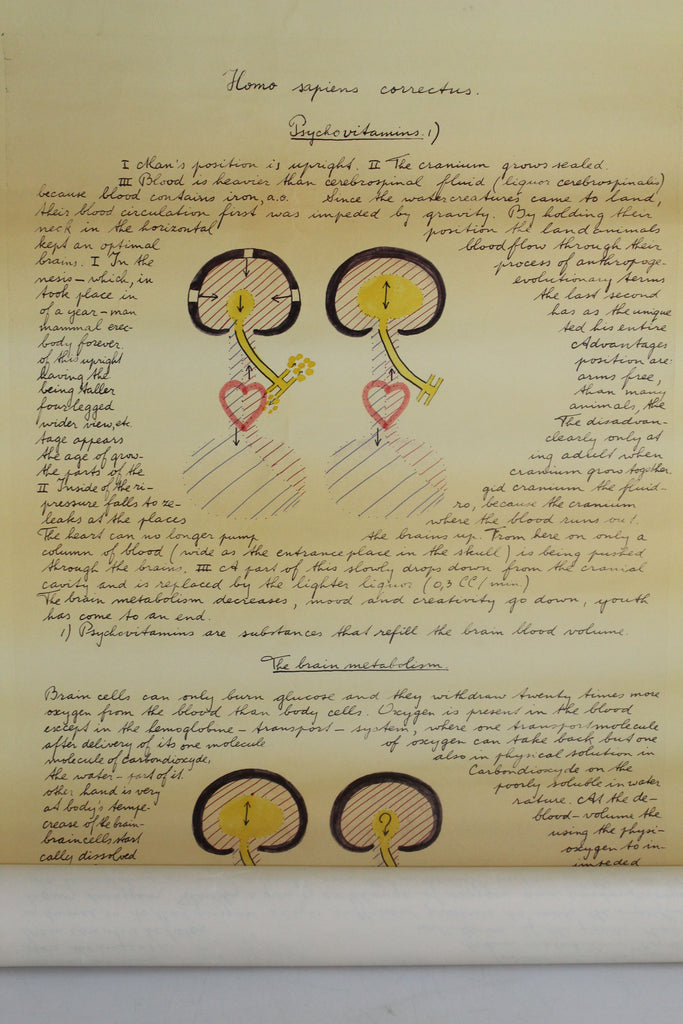 Homo sapiens correctus.
Psychovitamins. 1)
I Man's position is upright. II The cranium grows sealed.
III Blood is heavier than cerebrospinal fluid (liquor cerebrospinalis)
because blood contains iron, a.o. Since the watercreatures came to land,
their blood circulation first was impeded by gravity. By holding their
neck in the horizontal position the landanimals
kept an optimal bloodflow through their
brains. I In the process of anthropoge-
nesis – which, in evolutionary terms
took place in the last second
of a year – man has as the unique
mammal erec- ted his entire
body forever. Advantages
of this upright position are:
leaving the arms free,
being taller than many
fourlegged animals, the
wider view, etc. The disadvan-
tage appears clearly only at
the age of grow- ing adult when
the parts of the cranium grow together
II Inside of the ri- gid cranium the fluid-
pressure falls to ze- ro, because the cranium
leaks at the places where the blood runs out.
The heart can no longer pump the brains up. From here on only a
column of blood (wide as the entranceplace in the skull) is being pushed
through the brains. III A part of this slowly drops down from the cranial
cavity and is replaced by the lighter liquor (0,3 CC/min.)
The brain metabolism decreases, mood and creativity go down, youth
has come to an end.
1) Psychovitamins are substances that refill the brain blood volume.
The brain metabolism.
Brain cells can only burn glucose and they withdraw twenty times more
oxygen from the blood than body cells. Oxygen is present in the blood
except in the hemoglobine – transport – system, where one transportmolecule
after delivery of its one molecule of oxygen can take back but one
molecule of carbondioxyde, also in physical solution in
the water – part of it. Carbondioxyde on the
other hand is very poorly soluble in water
at body's tempe- rature. At the de-
crease of the brain- blood – volume the
braincells start using the physi-
cally dissolved oxygen to in-
?